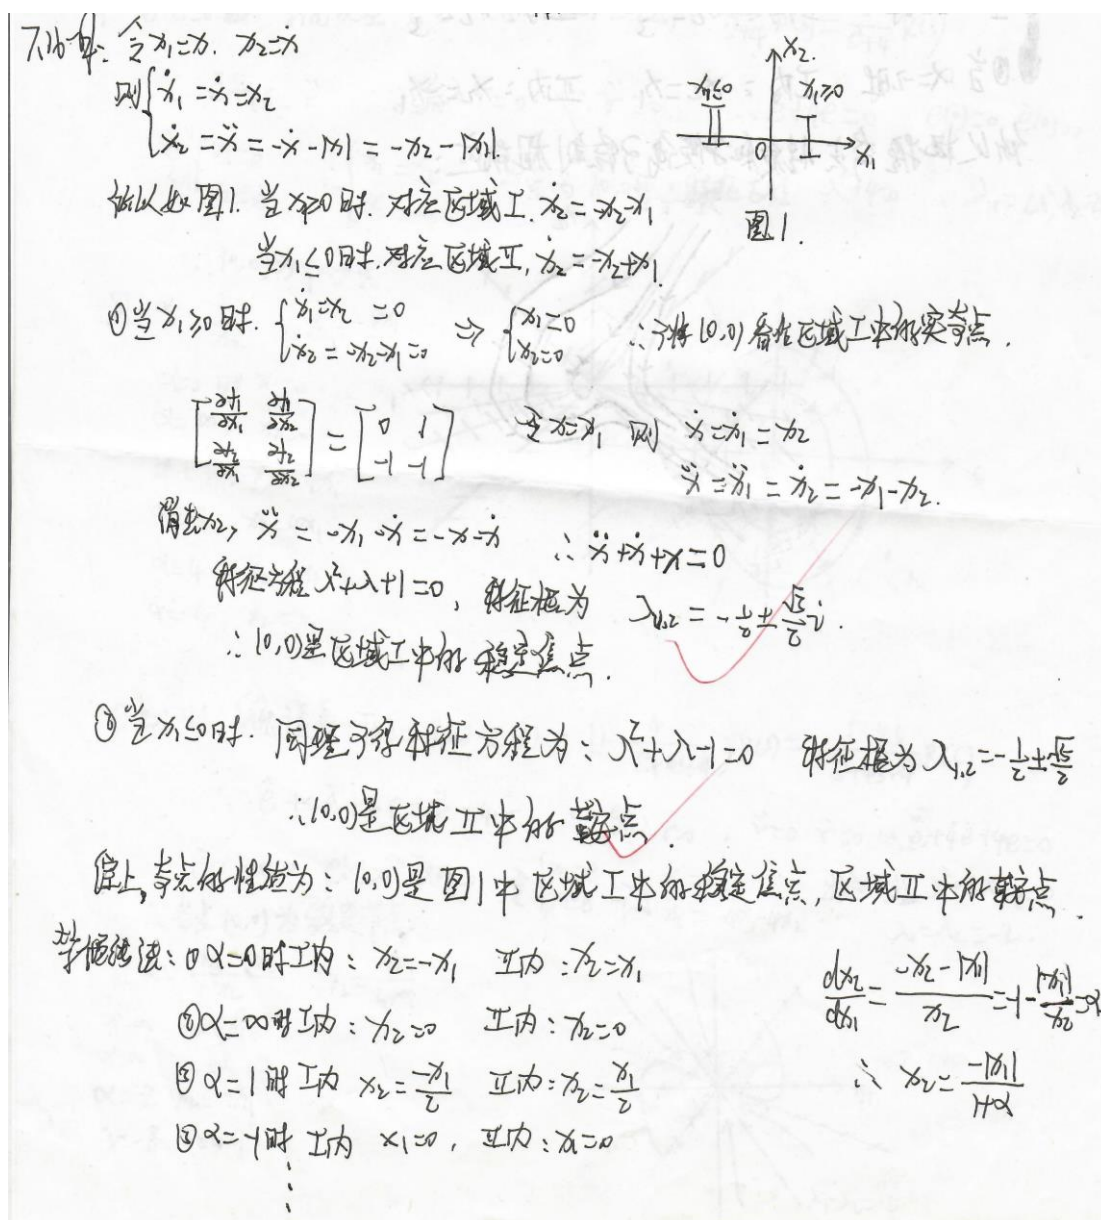 7.16 解: 令x₁=x. x₂=ẋ
则{ẋ₁=ẋ=x₂
ẋ₂=ẍ=-ẋ-|x|=-x₂-|x₁|
x₂
x₁≤0 x₁≥0
II I
0 x₁
图1.
所以如图1. 当x₁≥0时. 对应区域I. ẋ₂=-x₂-x₁
当x₁≤0时. 对应区域II, ẋ₂=-x₂+x₁.
①当x₁≥0时. {ẋ₁=x₂=0 ẋ₂=-x₂-x₁=0 ⇒ {x₁=0 x₂=0 ∴可将(0,0)看作区域I中的实奇点.
[∂f₁/∂x₁ ∂f₁/∂x₂; ∂f₂/∂x₁ ∂f₂/∂x₂] = [0 1; -1 -1] 令x=x₁ 则 ẋ=ẋ₁=x₂
ẍ=ẍ₁=ẋ₂=-x₁-x₂.
消去x₂, ẍ=-x₁-ẋ=-x-ẋ ∴ẍ+ẋ+x=0
特征方程λ²+λ+1=0, 特征根为 λ₁,₂=-1/2±√3/2 i.
∴(0,0)是区域I中的稳定焦点.
②当x₁≤0时. 同理可得特征方程为: λ²+λ-1=0 特征根为λ₁,₂=-1/2±√5/2
∴(0,0)是区域II中的鞍点.
综上,奇点的性质为: (0,0)是图1中区域I中的稳定焦点, 区域II中的鞍点.
等倾线法: ①α=0时I内: x₂=-x₁ II内: x₂=x₁
②α=∞时I内: x₂=0 II内: x₂=0
③α=1时I内 x₂=-x₁/2 II内: x₂=x₁/2
③α=-1时I内 x₁=0, II内: x₁=0
⋮
dx₂/dx₁=(-x₂-|x₁|)/x₂=-1-|x₁|/x₂=α
∴ x₂=-|x₁|/(1+α)